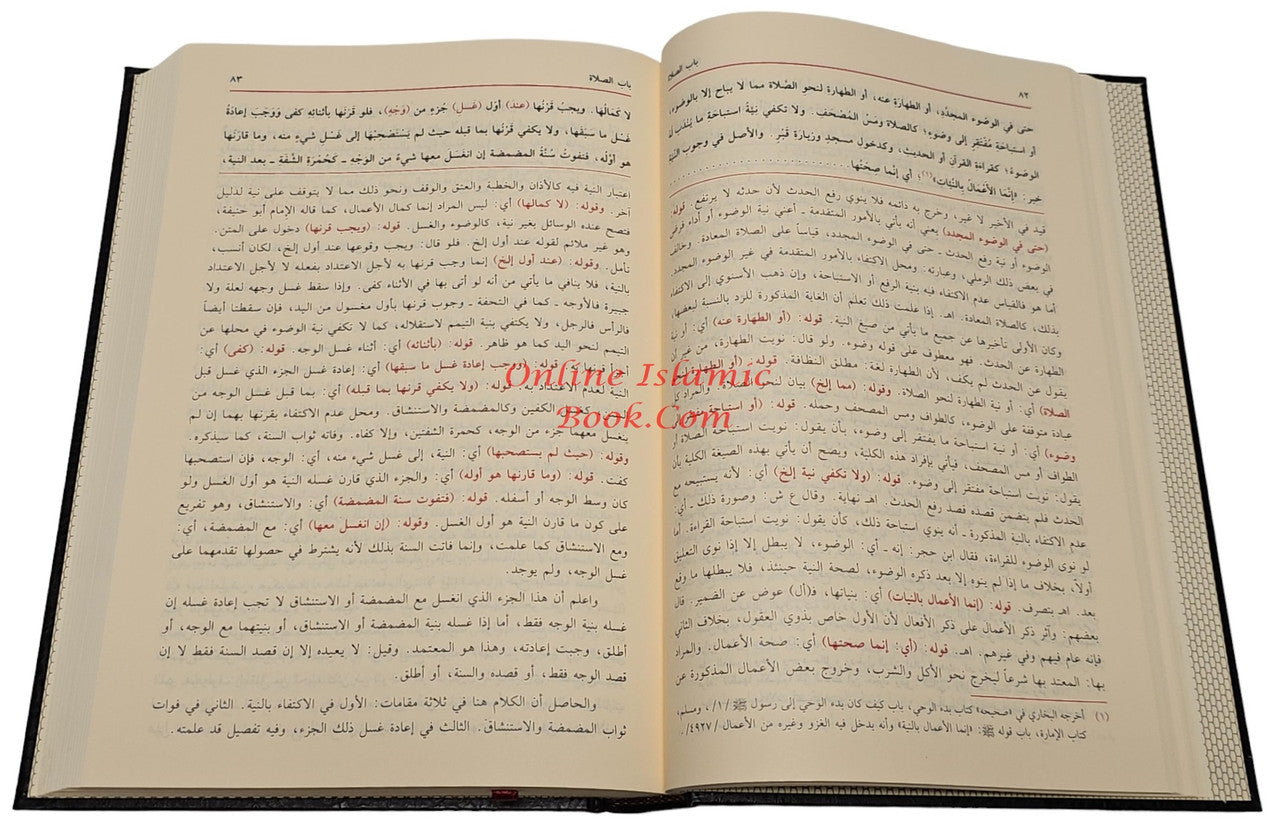 ٨٢ باب الصلاة
حتى في الوضوء المجدَّد، أو الطهارَة عنه، أو الطهارة لنحو الصَّلاة مما لا يباح إلا بالوضوء،
أو استباحَة مُفْتَقِرٍ إلى وضوءٍ؛ كالصلاة ومَسِّ المُصْحَفِ. ولا تكفي نيَّةُ استباحَة ما يُنْدَبُ له
الوضوءُ؛ كقراءة القرآن أو الحديث، وكدخول مسجدٍ وزيارَة قَبْرٍ. والأصل في وجوب النيَّة
خبر: «إنَّمَا الأَعْمَالُ بالنِّيَّات»(١)؛ أي إنَّما صِحَّتُها
قيد في الأخير لا غير، وخرج به دائمه فلا ينوي رفع الحدث لأن حدثه لا يرتفع. قوله:
(حتى في الوضوء المجدد) يعني أنه يأتي بالأمور المتقدمة ـ أعني نية الوضوء أو أداء فرض
الوضوء أو نية رفع الحدث ـ حتى في الوضوء المجدد، قياساً على الصلاة المعادة. وخالف
في بعض ذلك الرملي، وعبارته: ومحل الاكتفاء بالأمور المتقدمة في غير الوضوء المجدد.
أما هو فالقياس عدم الاكتفاء فيه بنية الرفع أو الاستباحة، وإن ذهب الأسنوي إلى الاكتفاء
بذلك، كالصلاة المعادة. اهـ. إذا علمت ذلك تعلم أن الغاية المذكورة للرد بالنسبة لبعضها،
وكان الأولى تأخيرها عن جميع ما يأتي من صيغ النية. قوله: (أو الطهارة عنه) أي: أو نية
الطهارة عن الحدث. فهو معطوف على قوله وضوء. ولو قال: نويت الطهارة، من غير أن
يقول عن الحدث لم يكف، لأن الطهارة لغة: مطلق النظافة. قوله: (أو الطهارة لنحو
الصلاة) أي: أو نية الطهارة لنحو الصلاة. وقوله: (مما إلخ) بيان لنحو الصلاة. والمراد كل
عبادة متوقفة على الوضوء، كالطواف ومس المصحف وحمله. قوله: (أو استباحة مفتقر إلى
وضوء) أي: أو نية استباحة ما يفتقر إلى وضوء، بأن يقول: نويت استباحة الصلاة أو
الطواف أو مس المصحف، فيأتي بإفراد هذه الكلية، ويصح أن يأتي بهذه الصيغة الكلية بأن
يقول: نويت استباحة مفتقر إلى وضوء. قوله: (ولا تكفي نية إلخ) أي: لأنه يستبيحه مع
الحدث فلم يتضمن قصده قصد رفع الحدث. اهـ نهاية. وقال ع ش: وصورة ذلك ـ أي:
عدم الاكتفاء بالنية المذكورة ـ أنه ينوي استباحة ذلك، كأن يقول: نويت استباحة القراءة. أما
لو نوى الوضوء للقراءة، فقال ابن حجر: إنه ـ أي: الوضوء، لا يبطل إلا إذا نوى التعليق
أولاً، بخلاف ما إذا لم ينوه إلا بعد ذكره الوضوء، لصحة النية حينئذ، فلا يبطلها ما وقع
بعد. اهـ بتصرف. قوله: (إنما الأعمال بالنيات) أي: بنياتها، فـ(أل) عوض عن الضمير. قال
بعضهم: وآثر ذكر الأعمال على ذكر الأفعال لأن الأول خاص بذوي العقول، بخلاف الثاني
فإنه عام فيهم وفي غيرهم. اهـ. قوله: (أي: إنما صحتها) أي: صحة الأعمال. والمراد
بها: المعتد بها شرعاً ليخرج نحو الأكل والشرب، وخروج بعض الأعمال المذكورة عن
(١) أخرجه البخاري في «صحيحه» كتاب بدء الوحي، باب كيف كان بدء الوحي إلى رسول ﷺ /١/، ومسلم،
كتاب الإمارة، باب قوله ﷺ: «إنما الأعمال بالنية» وأنه يدخل فيه الغزو وغيره من الأعمال /٤٩٢٧/.
باب الصلاة ٨٣
لا كمَالُها. ويجبُ قَرْنُها (عند) أوّل (غَسل) جُزءٍ من (وَجْهٍ)، فلو قَرَنَها بأثنائِه كفى ووَجَبَ إعادَةُ
غَسْل ما سَبَقَها، ولا يكفي قَرْنُها بما قبله حيث لم يَسْتَصْحِبْها إلى غَسْل شيءٍ منه، وما قارَنَها
هو أوّلُه، فتفوت سُنَّةُ المضمضة إن انغَسَلَ معها شيءٌ من الوَجْه ـ كَحُمْرَة الشَّفَة ـ بعد النية،
اعتبار النية فيه كالأذان والخطبة والعتق والوقف ونحو ذلك مما لا يتوقف على نية لدليل
آخر. وقوله: (لا كمالها) أي: ليس المراد إنما كمال الأعمال، كما قاله الإمام أبو حنيفة،
فتصح عنده الوسائل بغير نية، كالوضوء والغسل. قوله: (ويجب قرنها) دخول على المتن.
وهو غير ملائم لقوله عند أول إلخ. فلو قال: ويجب وقوعها عند أول إلخ، لكان أنسب،
تأمل. وقوله: (عند أول إلخ) إنما وجب قرنها به لأجل الاعتداد بفعله لا لأجل الاعتداد
بالنية، فلا ينافي ما يأتي من أنه لو أتى بها في الأثناء كفى. وإذا سقط غسل وجهه لعلة ولا
جبيرة فالأوجه ـ كما في التحفة ـ وجوب قرنها بأول مغسول من اليد، فإن سقطتا أيضاً
فالرأس فالرجل، ولا يكتفي بنية التيمم لاستقلاله، كما لا تكفي نية الوضوء في محلها عن
التيمم لنحو اليد كما هو ظاهر. قوله: (بأثنائه) أي: أثناء غسل الوجه. قوله: (كفى) أي:
قوله: (ووجب إعادة غسل ما سبقها) أي: إعادة غسل الجزء الذي غسل قبل
النية لعدم الاعتداد به. قوله: (ولا يكفي قرنها بما قبله) أي: بما قبل غسل الوجه من
الكفين وكالمضمضة والاستنشاق. ومحل عدم الاكتفاء بقرنها بهما إن لم
ينغسل معهما جزء من الوجه، كحمرة الشفتين، وإلا كفاه. وفاته ثواب السنة، كما سيذكره.
وقوله: (حيث لم يستصحبها) أي: النية، إلى غسل شيء منه، أي: الوجه، فإن استصحبها
كفت. قوله: (وما قارنها هو أوله) أي: والجزء الذي قارن غسله النية هو أول الغسل ولو
كان وسط الوجه أو أسفله. قوله: (فتفوت سنة المضمضة) أي: والاستنشاق، وهو تفريع
على كون ما قارن النية هو أول الغسل. وقوله: (إن انغسل معها) أي: مع المضمضة، أي:
ومع الاستنشاق كما علمت، وإنما فاتت السنة بذلك لأنه يشترط في حصولها تقدمهما على
غسل الوجه، ولم يوجد.
واعلم أن هذا الجزء الذي انغسل مع المضمضة أو الاستنشاق لا تجب إعادة غسله إن
غسله بنية الوجه فقط، أما إذا غسله بنية المضمضة أو الاستنشاق، أو بنيتهما مع الوجه، أو
أطلق، وجبت إعادته، وهذا هو المعتمد. وقيل: لا يعيده إلا إن قصد السنة فقط لا إن
قصد الوجه فقط، أو قصده والسنة، أو أطلق.
والحاصل أن الكلام هنا في ثلاثة مقامات: الأول في الاكتفاء بالنية. الثاني في فوات
ثواب المضمضة والاستنشاق. الثالث في إعادة غسل ذلك الجزء، وفيه تفصيل قد علمته.
Online Islamic
Book.Com